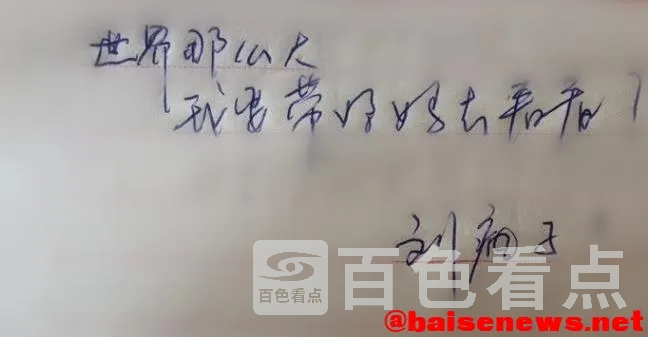 世界那么大
我要带妈妈去看看!
刘
百色看点
百色看点
@baisenews.net